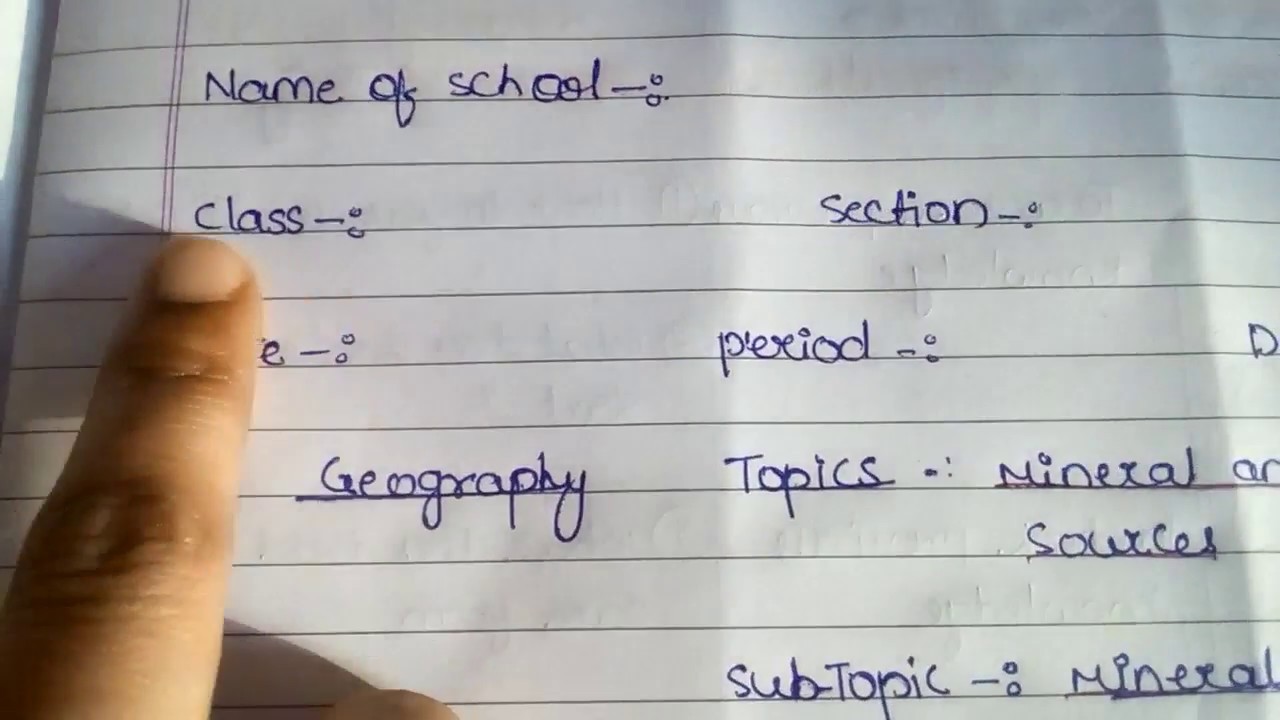 Name of school -:
Class -: Section -:
e -: period -: D
Geography Topics -: Mineral an
Sources
Sub-Topic -: Mineral